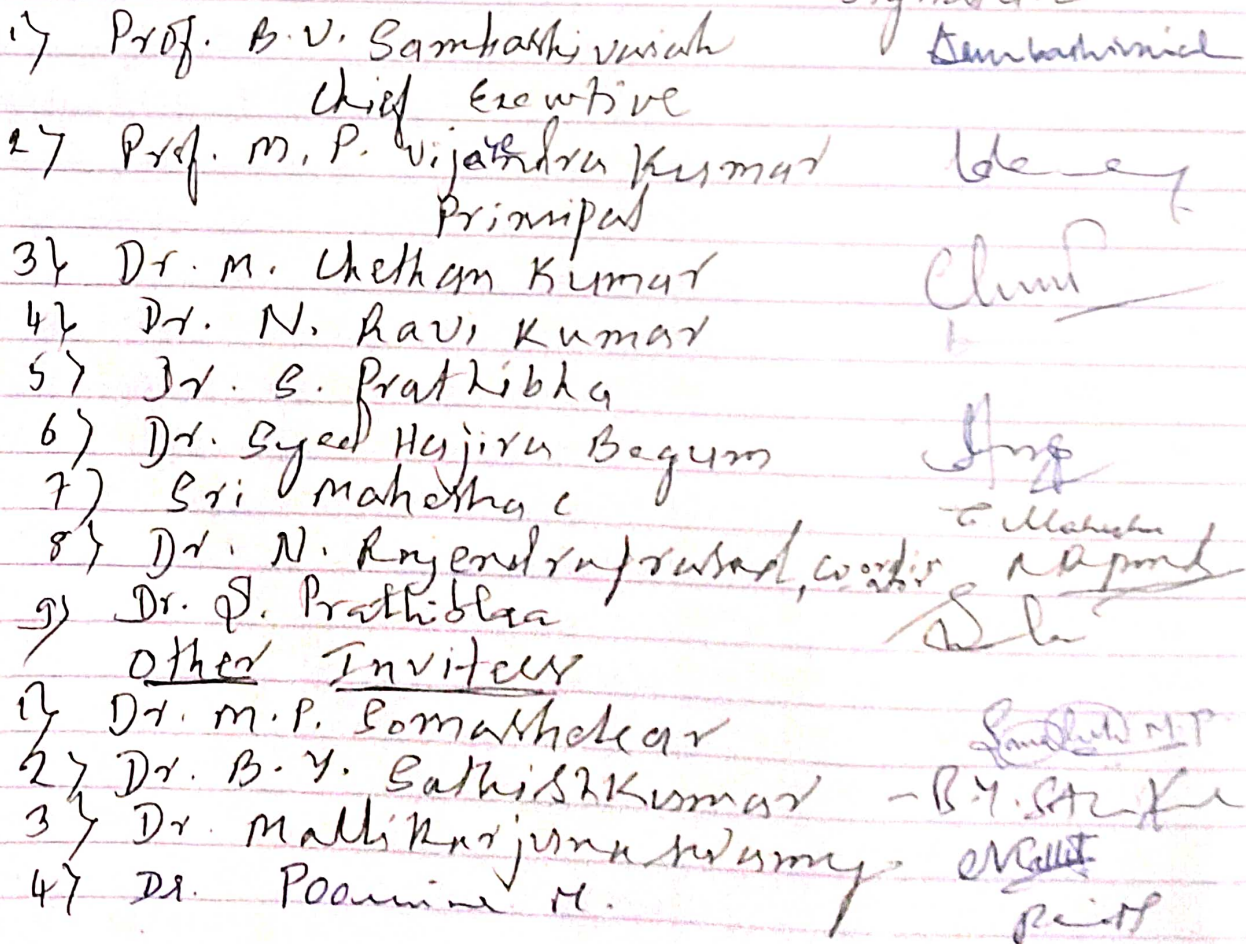 1) Prof. B.V. Sambashivaiah
Chief Executive
2) Prof. M.P. Vijayendra Kumar
Principal
3) Dr. M. Chethan Kumar
4) Dr. N. Ravi Kumar
5) Dr. S. Prathibha
6) Dr. Syed Hajira Begum
7) Sri Mahesha C C Mahesha
8) Dr. N. Rajendraprasad, Coordinator
9) Dr. S. Prathibhaa
Other Invitees
1) Dr. M.P. Somashekar
2) Dr. B.Y. SathishKumar
3) Dr. Mallikarjuna swamy
4) Dr. Poornima M.